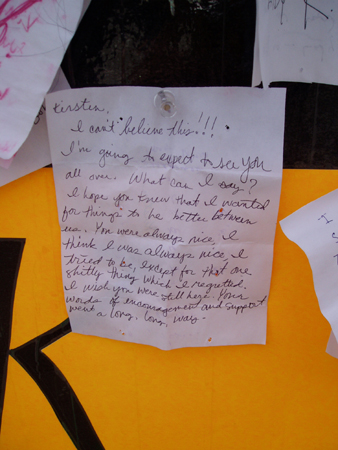 Kirsten,
I can't believe this!!!
I'm going to expect to see you
all over. What can I say?
I hope you knew that I wanted
for things to be better between
us. You were always nice, I
think I was always nice, I
tried to be, except for that one
shitty thing which I regretted.
I wish you were still here. Your
words of encouragement and support
went a long, long, way.
K